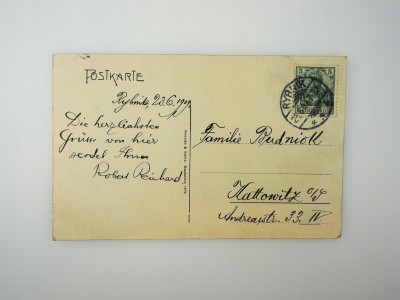 POSTKARTE
Rybnik, 20/6. 1909
Die herzlichsten
Grüsse von hier
sendet Ihnen
Robert Reinhard
Familie
Kattowitz O/S
Andreasstr. 33. IV
RYBNIK
5 5